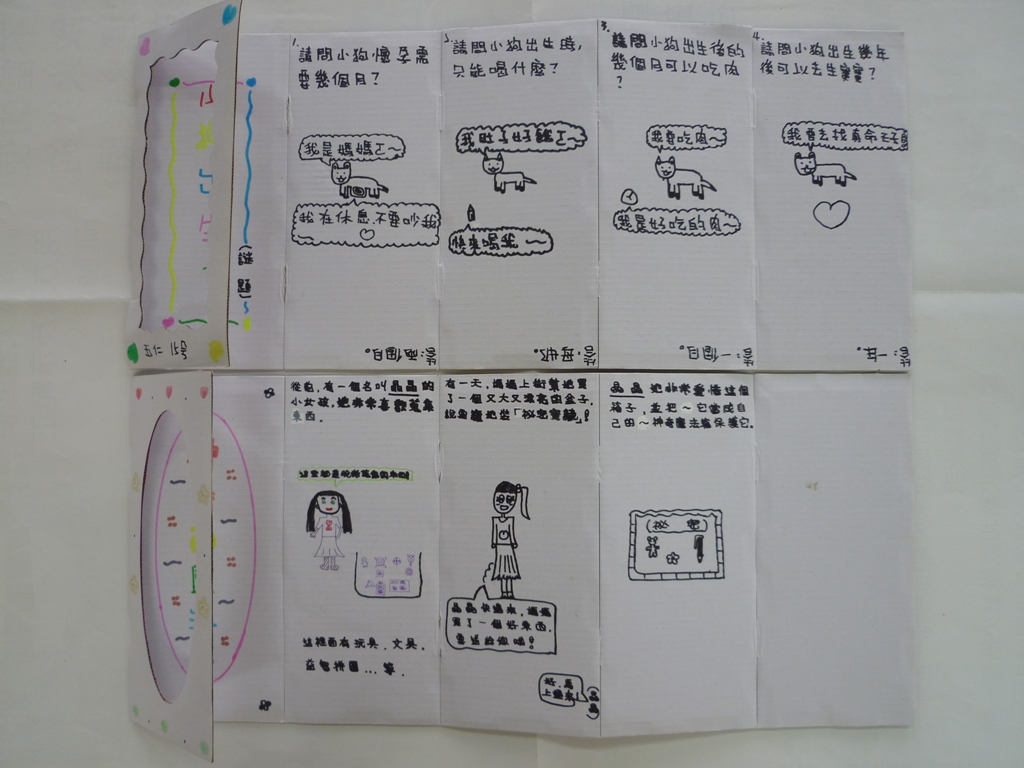 (謎題)
五仁 15號
1.
請問小狗懷孕需
要幾個月?
我是媽媽了~
我在休息不要吵我
答:兩個月。
2.
請問小狗出生時,
只能喝什麼?
我肚子好餓了~
快來喝我~
3.
請問小狗出生後的
幾個月可以吃肉
?
我要吃肉~
我是好吃的肉~
答:一個月。
4.
請問小狗出生幾年
後可以去生寶寶?
我要去找真命天子
答:一年。
從前,有一個名叫晶晶的
小女孩,她非常喜歡蒐集
東西。
這裡面有玩具、文具、
益智拼圖...等。
有一天,媽媽上街幫她買
了一個又大又漂亮的盒子,
說要讓她裝「祕密寶藏」!
晶晶快過來,媽媽
買了一個好東西,
要送給你喔!
好,馬
上過來!
晶晶
晶晶她非常愛惜這個
箱子,並把~它當成自
己的~神奇魔法箱保護它。
(祕密)